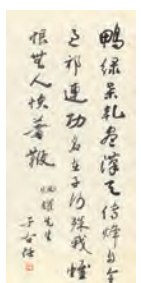 鴨綠某札卷漢天傳烽自全
已祁連功名在子何殊我惟
恨無人快著鞭
先生
于右任